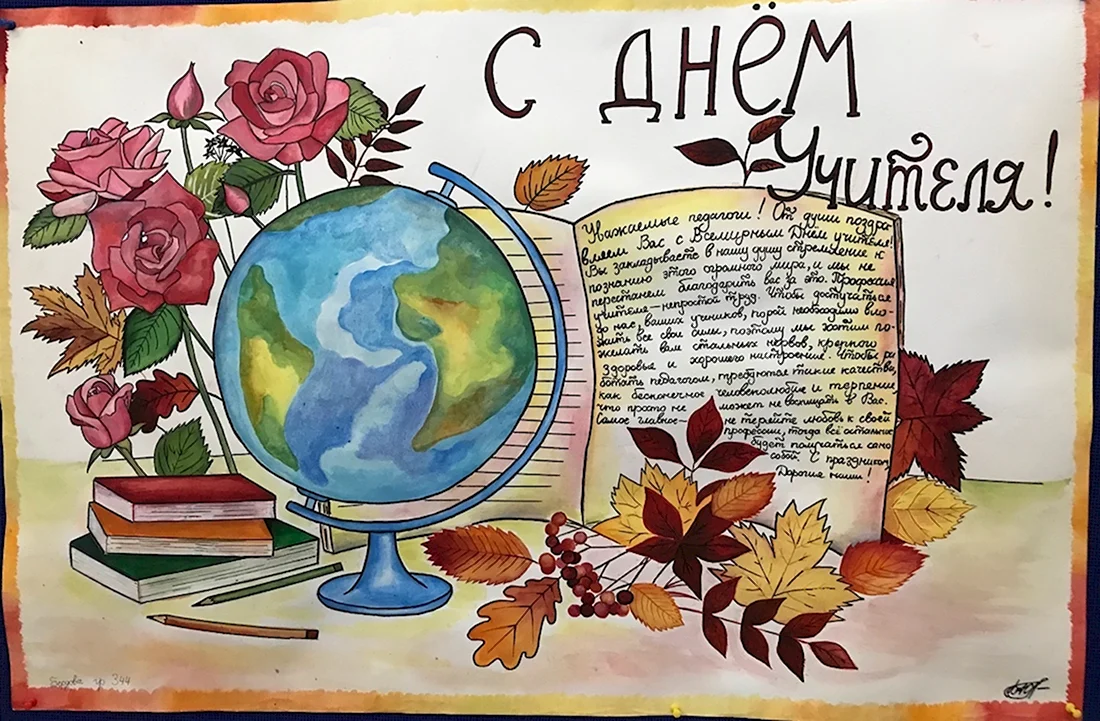 С ДНЁМ
Учителя!
Уважаемые педагоги! От души поздра-
вляем Вас с Всемирным Днём учителя!
Вы закладываете в нашу душу стремление к
познанию этого огромного мира, и мы не
перестанем благодарить вас за это. Профессия
учителя - непростой труд. Чтобы достучаться
до нас, ваших учеников, порой необходимо вло-
жить все свои силы, поэтому мы хотим по-
желать вам стальных нервов, крепкого
здоровья и хорошего настроения. Чтобы ра
ботать педагогом, требуются такие качества,
как бесконечное человеколюбие и терпение
что просто не может не восхищать в Вас.
Самое главное - не теряйте любовь к своей
профессии, тогда всё остальное
будет получаться само
собой. С праздником,
Дорогие наши!
гр 344